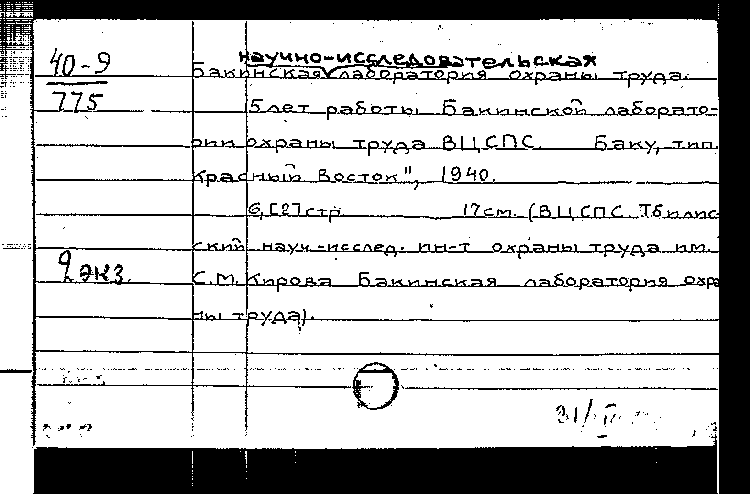 40-9
775
научно-исследовательская
Бакинская лаборатория охраны труда.
5 лет работы Бакинской лаборато-
рии охраны труда ВЦСПС. Баку, тип.
Красный Восток", 1940.
6,[2]стр 17см. (ВЦСПС. Тбилис-
ский науч-исслед. ин-т охраны труда им.
2 экз.
С.М. Кирова Бакинская лаборатория охра
ны труда).
31/IV